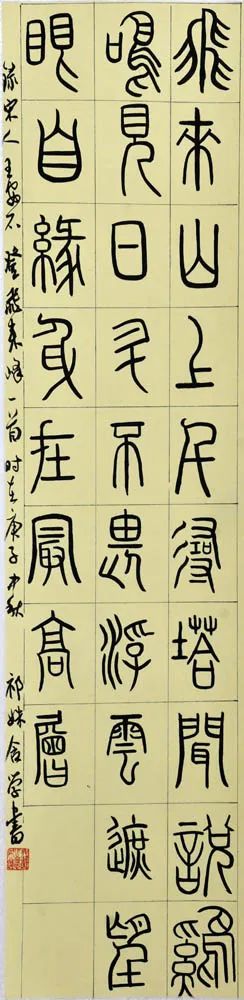 飛來山上千尋塔聞說雞
鳴見日升不畏浮雲遮望
眼自緣身在最高層
录宋人王安石登飛來峰一首时在庚子中秋 祁 含学書